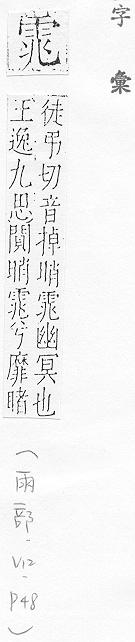 字彙
雿
徒弔切音掉睄雿幽冥也
王逸九思閴睄雿兮靡睹
(雨部-V12-P48)